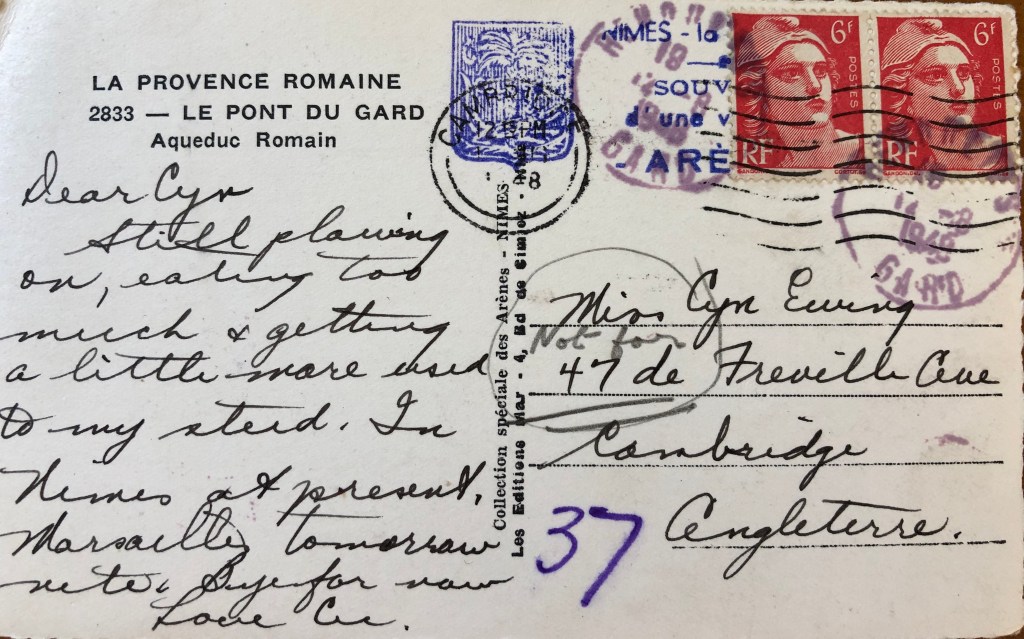 LA PROVENCE ROMAINE
2833 — LE PONT DU GARD
Aqueduc Romain
Dear Cyn
Still plowing
on, eating too
much & getting
a little more used
to my steed. In
Nimes at present,
Marsailles tomorrow
nite. Bye for now
Love
Collection spéciale des Arènes - NIMES
Les Editions Mar - 4, Bd de Cimiez -
NIMES - la
SOUV
d'une v
- ARÈ
6F
POSTES
RF
6F
POSTES
RF
18
1948
GARD
12 PM
8
18
12 -8
1948
GARD
Miss Cyn Ewing
Not for
47 de Freville Ave
Cambridge
Angleterre.
37